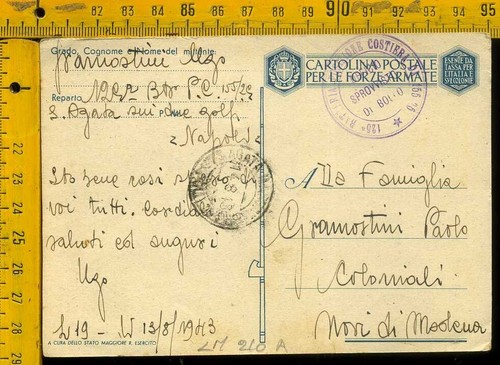 Grado, Cognome e Nome del mittente
Gramostini Ugo
Reparto 122ª Btr P.C. 155/25
S. Agata sui due golfi
Napoli
Sto bene così spero di
voi tutti. Cordiali
saluti ed auguri
Ugo
L 19 - 13/8/1943
A CURA DELLO STATO MAGGIORE R. ESERCITO
CARTOLINA POSTALE
PER LE FORZE ARMATE
ESENTE DA
TASSA PER
L'ITALIA E
SPEDIZIONE
SPROVVISTA
DI BOLLO
Alla Famiglia
Gramostini Paolo
Coloniali
Novi di Modena
LM 210 A
82 83 84 85 86 87 88 89 90 91 92 93 94 95
22
23
24
25
26
27
28
29